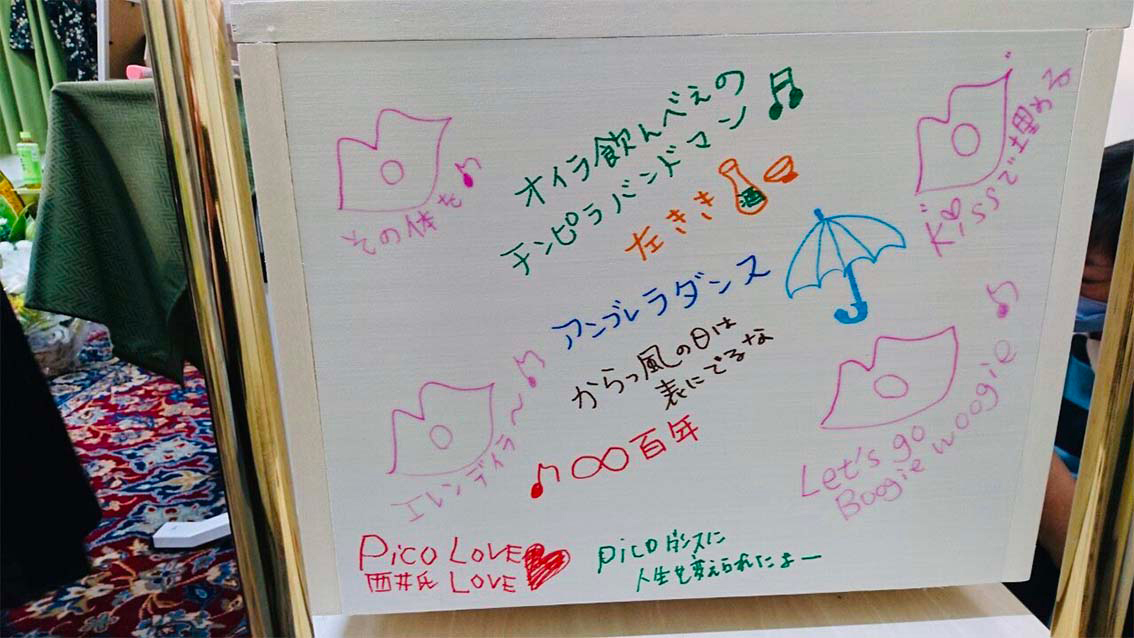 オイラ飲んべえの
チンピラバンドマン
左きき
酒
アンブレラダンス
からっ風の日は
表にでるな
〇〇百年
その体を
Kissで埋める
エレンディラ〜
Let's go
Boogie woogie
Pico LOVE
西井氏 LOVE
picoダンスに
人生を変えられたよー